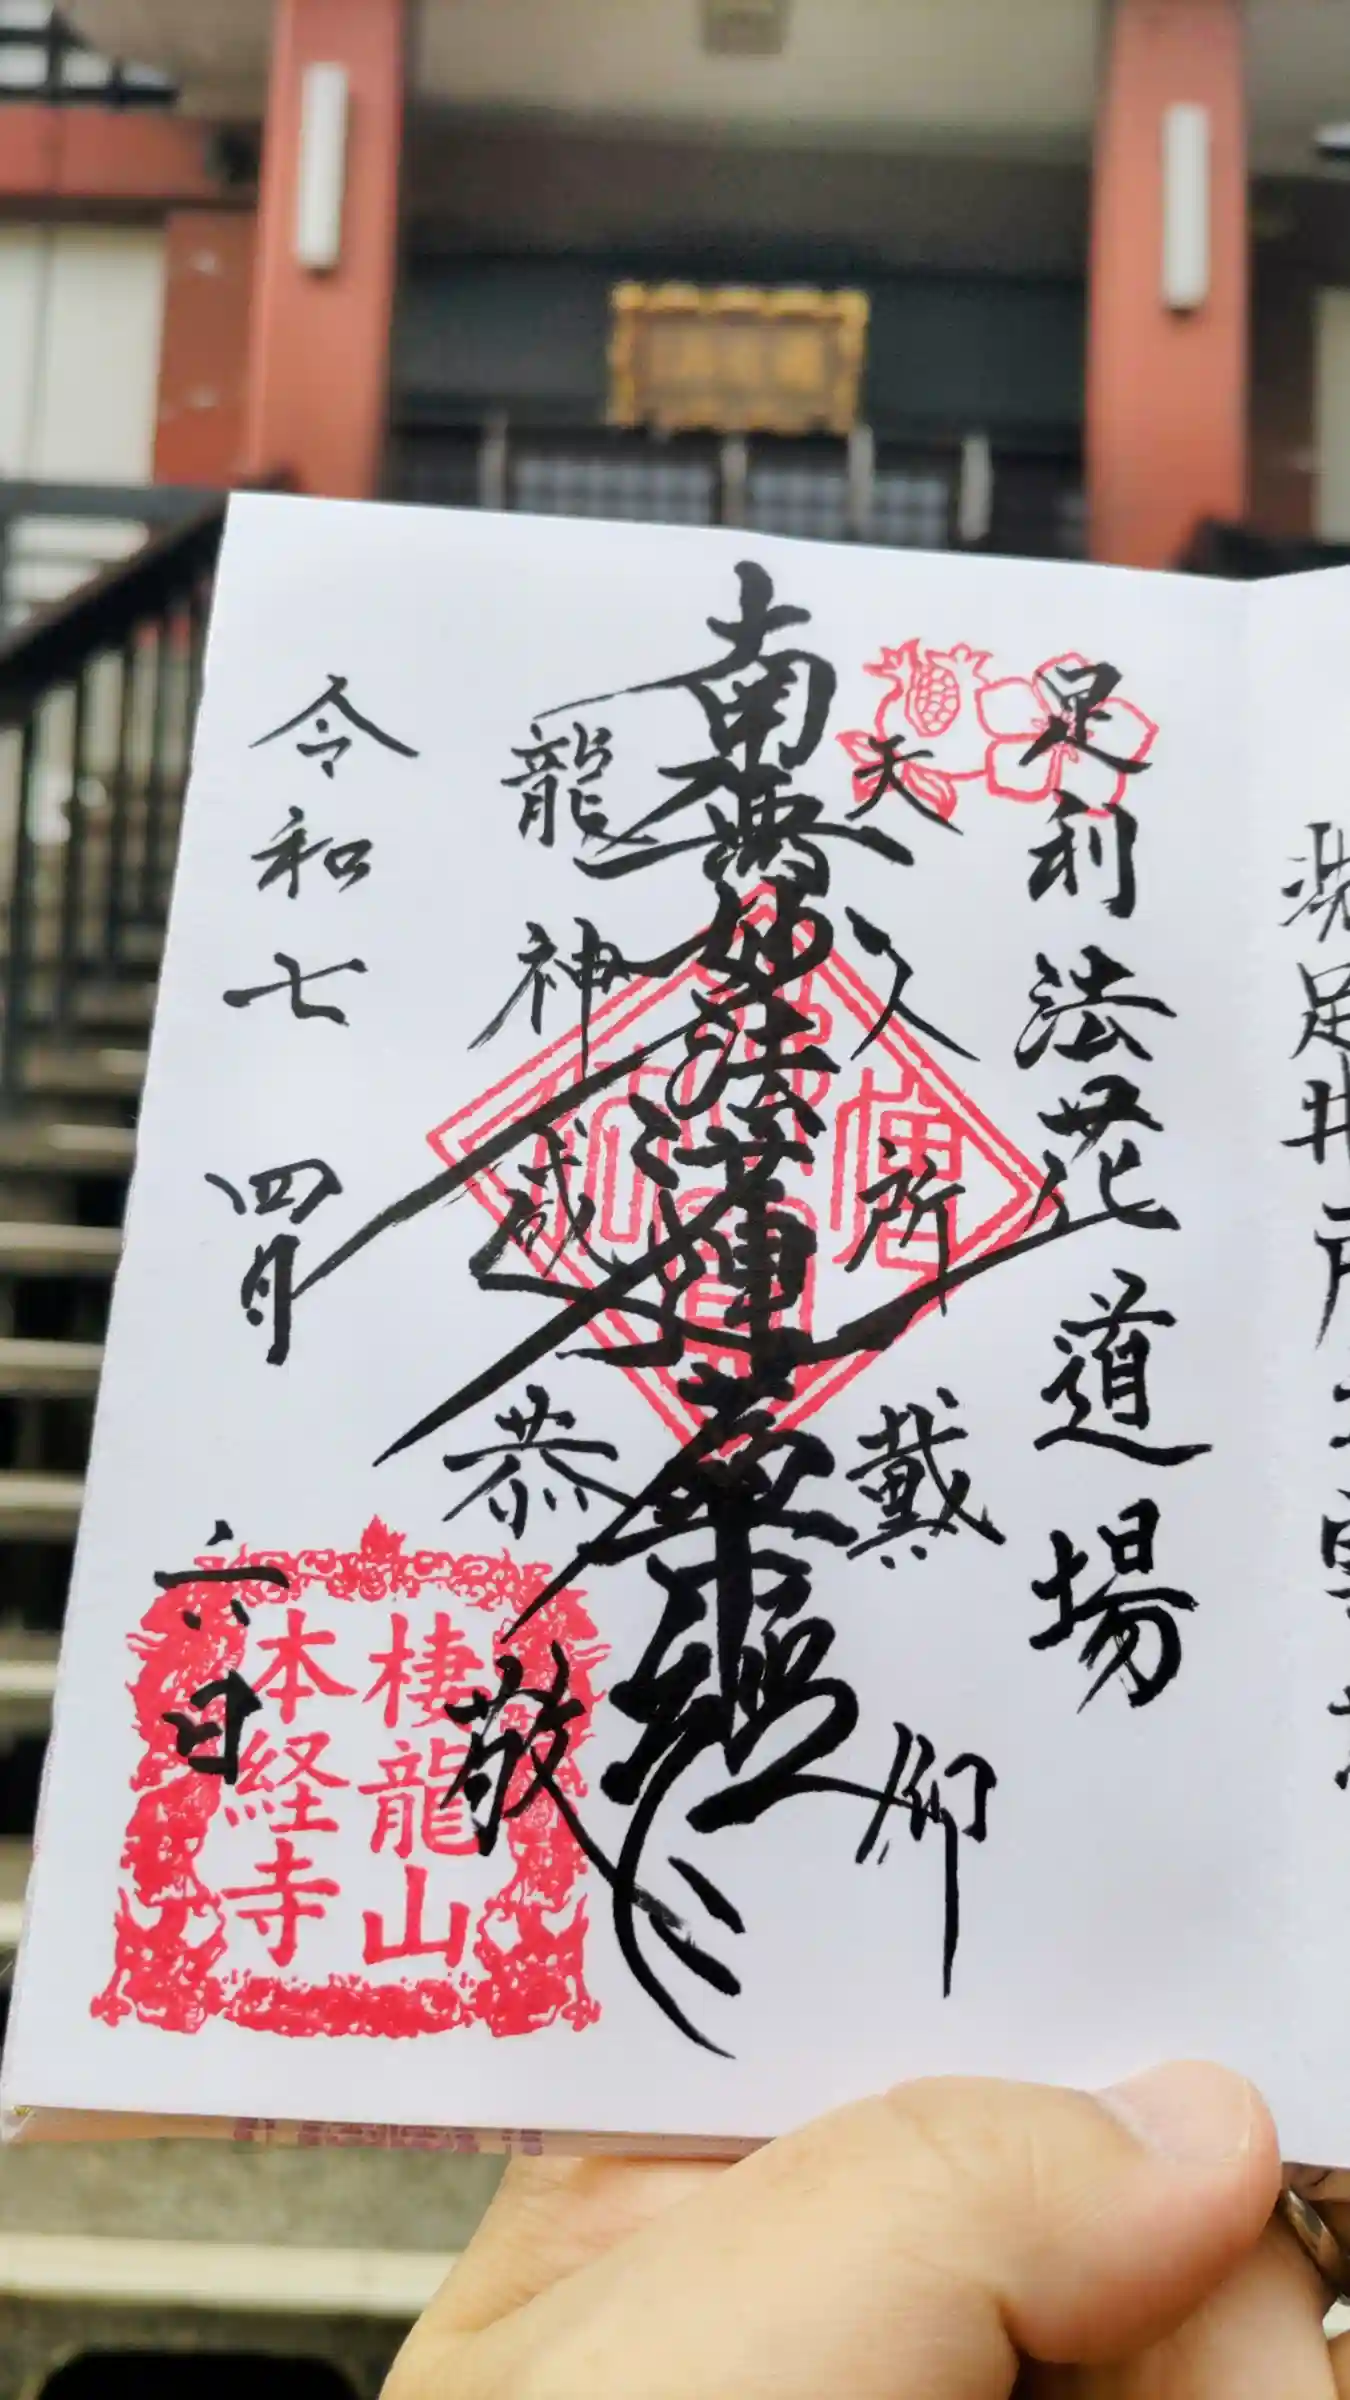 足利法花道場
天人所戴仰
南無妙法蓮華経
龍神咸恭敬
令和七四月六日
棲龍山
本経寺
洗足井戸